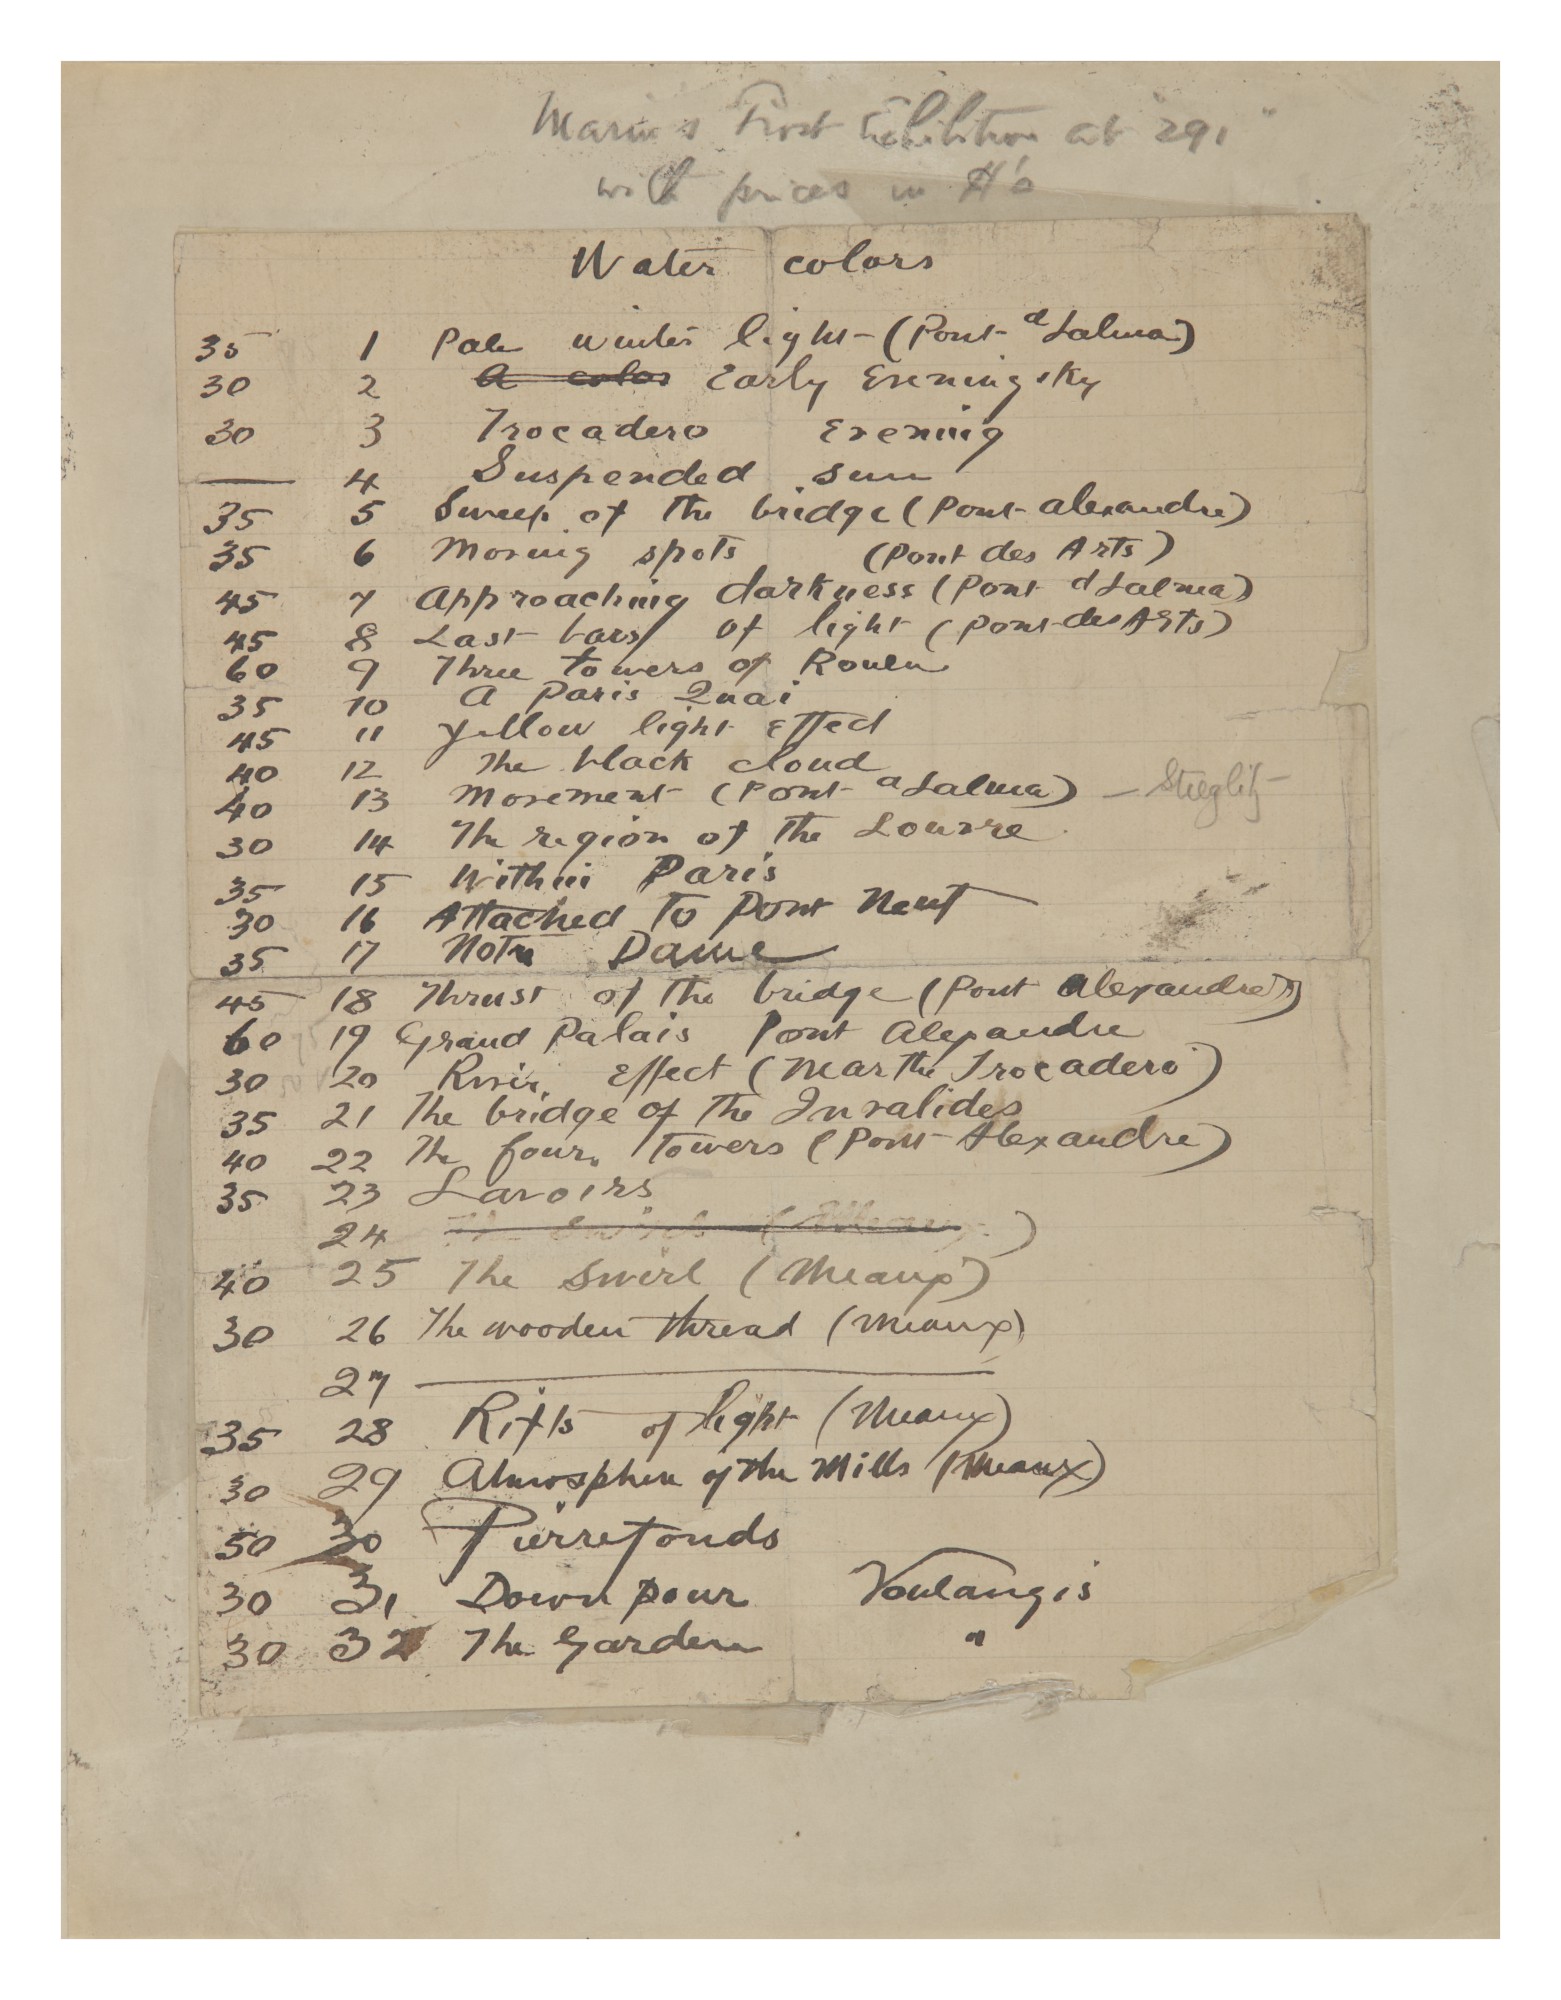 Marin's First Exhibition at "291"
with prices in $'s
Water colors
35 1 Pale winter light - (Pont d'Lalma)
30 2 A color Early Evening sky
30 3 Trocadero Evening
— 4 Suspended sun
35 5 Sweep of the bridge (Pont Alexandre)
35 6 Moving spots (Pont des Arts)
45 7 Approaching darkness (Pont d Lalma)
45 8 Last bars of light (Pont des Arts)
60 9 Three towers of Rouen
35 10 A Paris Quai
45 11 Yellow light effect
40 12 The black cloud
40 13 Movement (Pont a Lalma) — Stieglitz —
30 14 The region of the Louvre
35 15 Within Paris
30 16 Attached to Pont Neuf
35 17 Notre Dame
45 18 Thrust of the bridge (Pont Alexandre)
60 19 Grand Palais Pont Alexandre
30 20 River Effect (Near the Trocadero)
35 21 The bridge of the Invalides
40 22 The four towers (Pont Alexandre)
35 23 Lavoirs
24 The Swirl (Meaux)
40 25 The Swirl (Meaux)
30 26 The wooden thread (Meaux)
27 —
35 28 Rifts of light (Meaux)
30 29 Atmosphere of the Mills (Meaux)
50 30 Pierrefonds
30 31 Down pour Voulangis
30 32 The Garden "